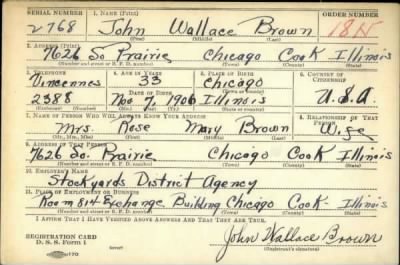 SERIAL NUMBER 1. NAME (Print) ORDER NUMBER
2768 John Wallace Brown 1811
(First) (Middle) (Last)
2. ADDRESS (Print)
7626 So Prairie Chicago Cook Illinois
(Number and street or R. F. D. number) (Town) (County) (State)
3. TELEPHONE 4. AGE IN YEARS 5. PLACE OF BIRTH 6. COUNTRY OF CITIZENSHIP
Vincennes 33 Chicago
2388 DATE OF BIRTH Illinois U.S.A
Nov 7 1906
(Exchange) (Number) (Mo.) (Day) (Yr.) (State or country)
7. NAME OF PERSON WHO WILL ALWAYS KNOW YOUR ADDRESS 8. RELATIONSHIP OF THAT PERSON
Mrs. Rose Mary Brown Wife
(Mr., Mrs., Miss) (First) (Middle) (Last)
9. ADDRESS OF THAT PERSON
7626 So. Prairie Chicago Cook Illinois
(Number and street or R. F. D. number) (Town) (County) (State)
10. EMPLOYER'S NAME
Stockyards District Agency
11. PLACE OF EMPLOYMENT OR BUSINESS
Room 814 Exchange Building Chicago Cook Illinois
(Number and street or R. F. D. number) (Town) (County) (State)
I AFFIRM THAT I HAVE VERIFIED ABOVE ANSWERS AND THAT THEY ARE TRUE.
REGISTRATION CARD
D. S. S. Form 1 John Wallace Brown
(Registrant's signature)